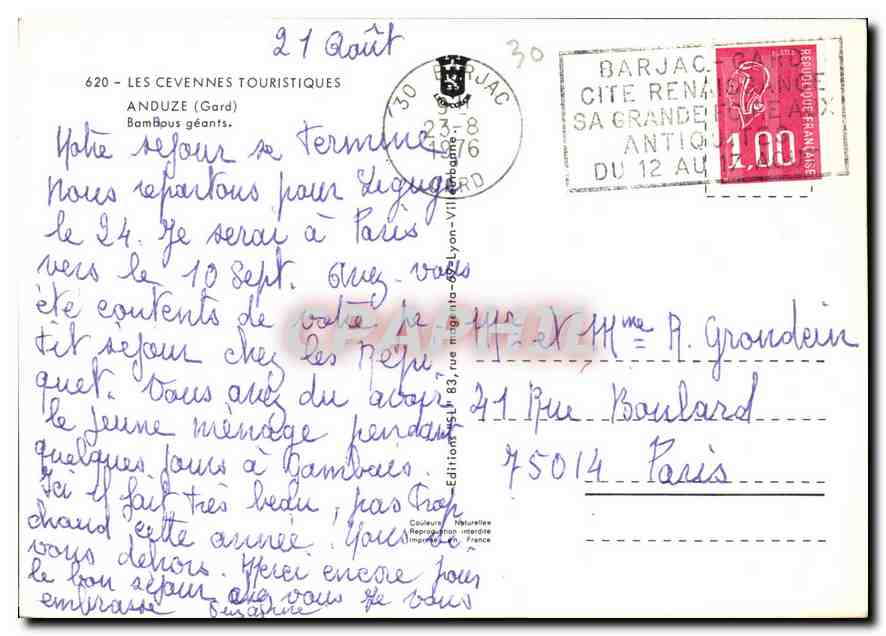 21 Août
30
620 - LES CEVENNES TOURISTIQUES
ANDUZE (Gard)
Bambous géants.
30 BARJAC
23-8
1976
GARD
BARJAC - GARD
CITE RENAISSANCE
SA GRANDE FOIRE AUX
ANTIQUITES
DU 12 AU 15 AOUT
REPUBLIQUE FRANÇAISE
1,00
Notre séjour se termine
Nous repartons pour Ligugé
le 24. Je serai à Paris
vers le 10 Sept. Avez-vous
été contents de votre pe
tit séjour chez les
quet. Vous avez du avoir
le jeune ménage pendant
quelques jours à Gambais.
Ici il fait très beau, pas trop
chaud cette année. Nous
vous dehors. Merci encore pour
le bon séjour chez vous Je vous
embrasse Suzanne
Editions "SL" 83, rue magenta-69-Lyon-Villeurbanne
Mr et Mme R. Grondein
41 Rue Boulard
75014 Paris
Couleurs Naturelles
Reproduction interdite
Imprimé en France
CPAPHIL